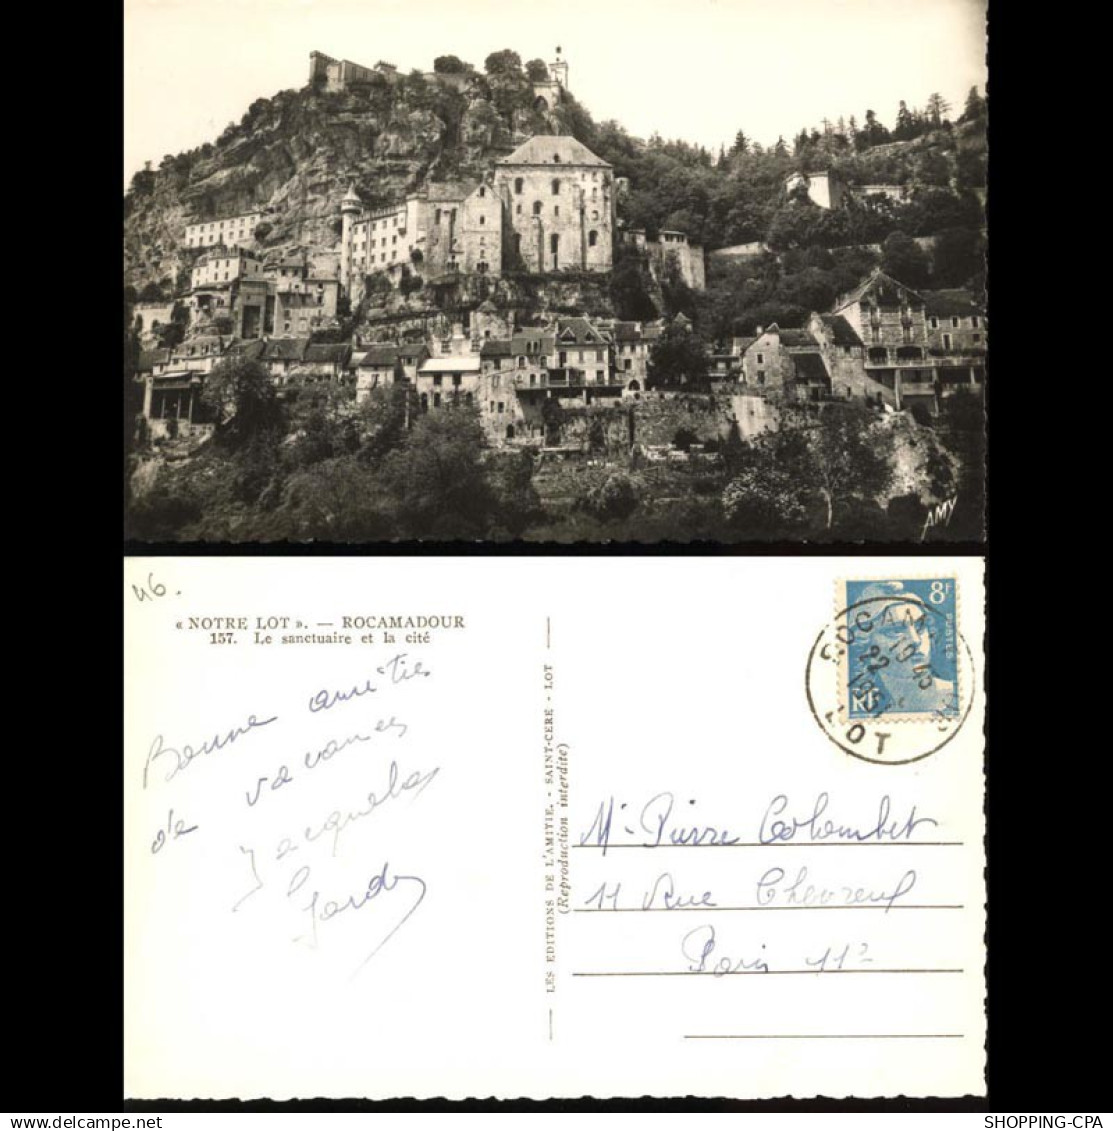 AMY
46.
« NOTRE LOT ». — ROCAMADOUR
157. Le sanctuaire et la cité
Bonne amitiés
de vacances
LES EDITIONS DE L'AMITIE. - SAINT-CERE - LOT
(Reproduction interdite)
8F
POSTES
RF
ROCAMADOUR
19 45
22
1951
LOT
Mr Pierre Colombet
11 Rue Chevreul
Paris 11e
SHOPPING-CPA